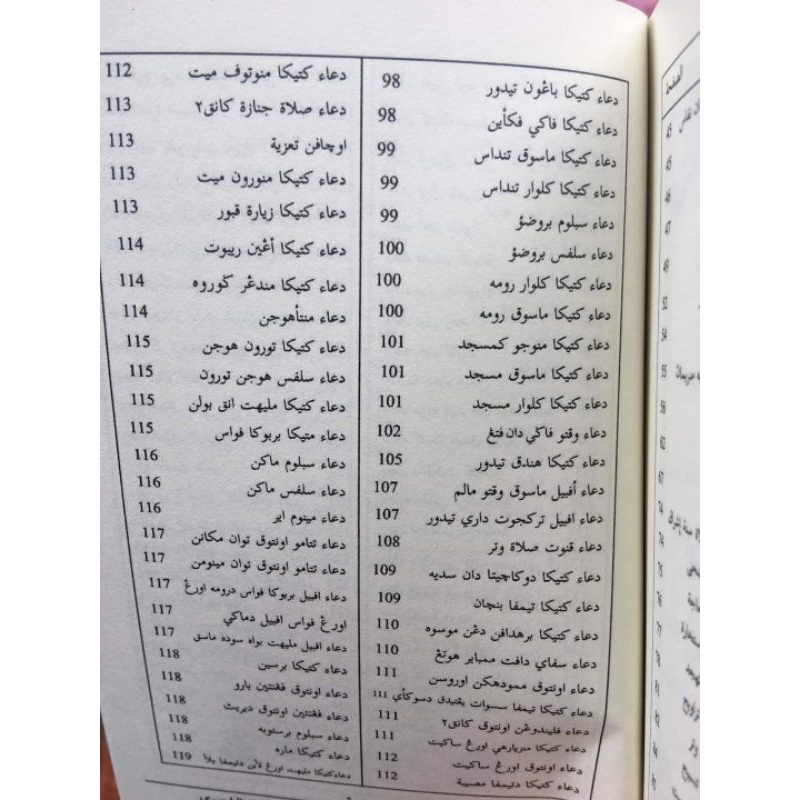 دعاء كتيكا باڠون تيدور 98
دعاء كتيكا ڤاكي ڤكأين 98
دعاء كتيكا ماسوق تنداس 99
دعاء كتيكا كلوار تنداس 99
دعاء سبلوم بروضؤ 99
دعاء سلڤس بروضؤ 100
دعاء كتيكا كلوار رومه 100
دعاء كتيكا ماسوق رومه 100
دعاء كتيكا منوجو كمسجد 101
دعاء كتيكا ماسوق مسجد 101
دعاء كتيكا كلوار مسجد 101
دعاء وقتو ڤاكي دان ڤتڠ 102
دعاء كتيكا هندق تيدور 105
دعاء أڤبيل ماسوق وقتو مالم 107
دعاء اڤبيل تركجوت داري تيدور 107
دعاء قنوت صلاة وتر 108
دعاء كتيكا دوكاچيتا دان سديه 109
دعاء كتيكا تيمڤا بنچان 109
دعاء كتيكا برهداڤن دڠن موسوه 110
دعاء سڤاي داڤت ممباير هوتڠ 110
دعاء اونتوق ممودهكن اوروسن 111
دعاء كتيكا تيمڤا سسوات يڠتيدق دسوكأي 111
دعاء ڤليندوڠن اونتوق كانق٢ 111
دعاء كتيكا منزيارهي اورڠ ساكيت 111
دعاء اونتوق اورڠ ساكيت 112
دعاء كتيكا دتيمڤا مصيبة 112
دعاء كتيكا منوتوڤ ميت 112
دعاء صلاة جنازة كانق٢ 113
اوچاڤن تعزية 113
دعاء كتيكا منورون ميت 113
دعاء كتيكا زيارة قبور 113
دعاء كتيكا أڠين ريبوت 114
دعاء كتيكا مندڠر ڬوروه 114
دعاء منتأهوجن 114
دعاء كتيكا تورون هوجن 115
دعاء سلڤس هوجن تورون 115
دعاء كتيكا مليهت انق بولن 115
دعاء كتيكا بربوكا ڤواس 115
دعاء سبلوم ماكن 116
دعاء سلڤس ماكن 116
دعاء مينوم اير 116
دعاء تتامو اونتوق توان مكانن 117
دعاء تتامو اونتوق توان مينومن 117
دعاء اڤبيل بربوكا ڤواس درومه اورڠ 117
اورڠ ڤواس اڤبيل دماكي 117
دعاء اڤبيل مليهت بواه سوده ماسق 117
دعاء كتيكا برسين 118
دعاء اونتوق ڤڠنتين بارو 118
دعاء ڤڠنتين اونتوق ديريث 118
دعاء سبلوم برستوبه 118
دعاء كتيكا ماره 118
دعاء كتيكا مليهت اورڠ لأين دتيمڤا بلأ 119
الصفحة
43
45
46
47
49
52
54
55
56
62
67
74
74
75
76
77
78
81
82